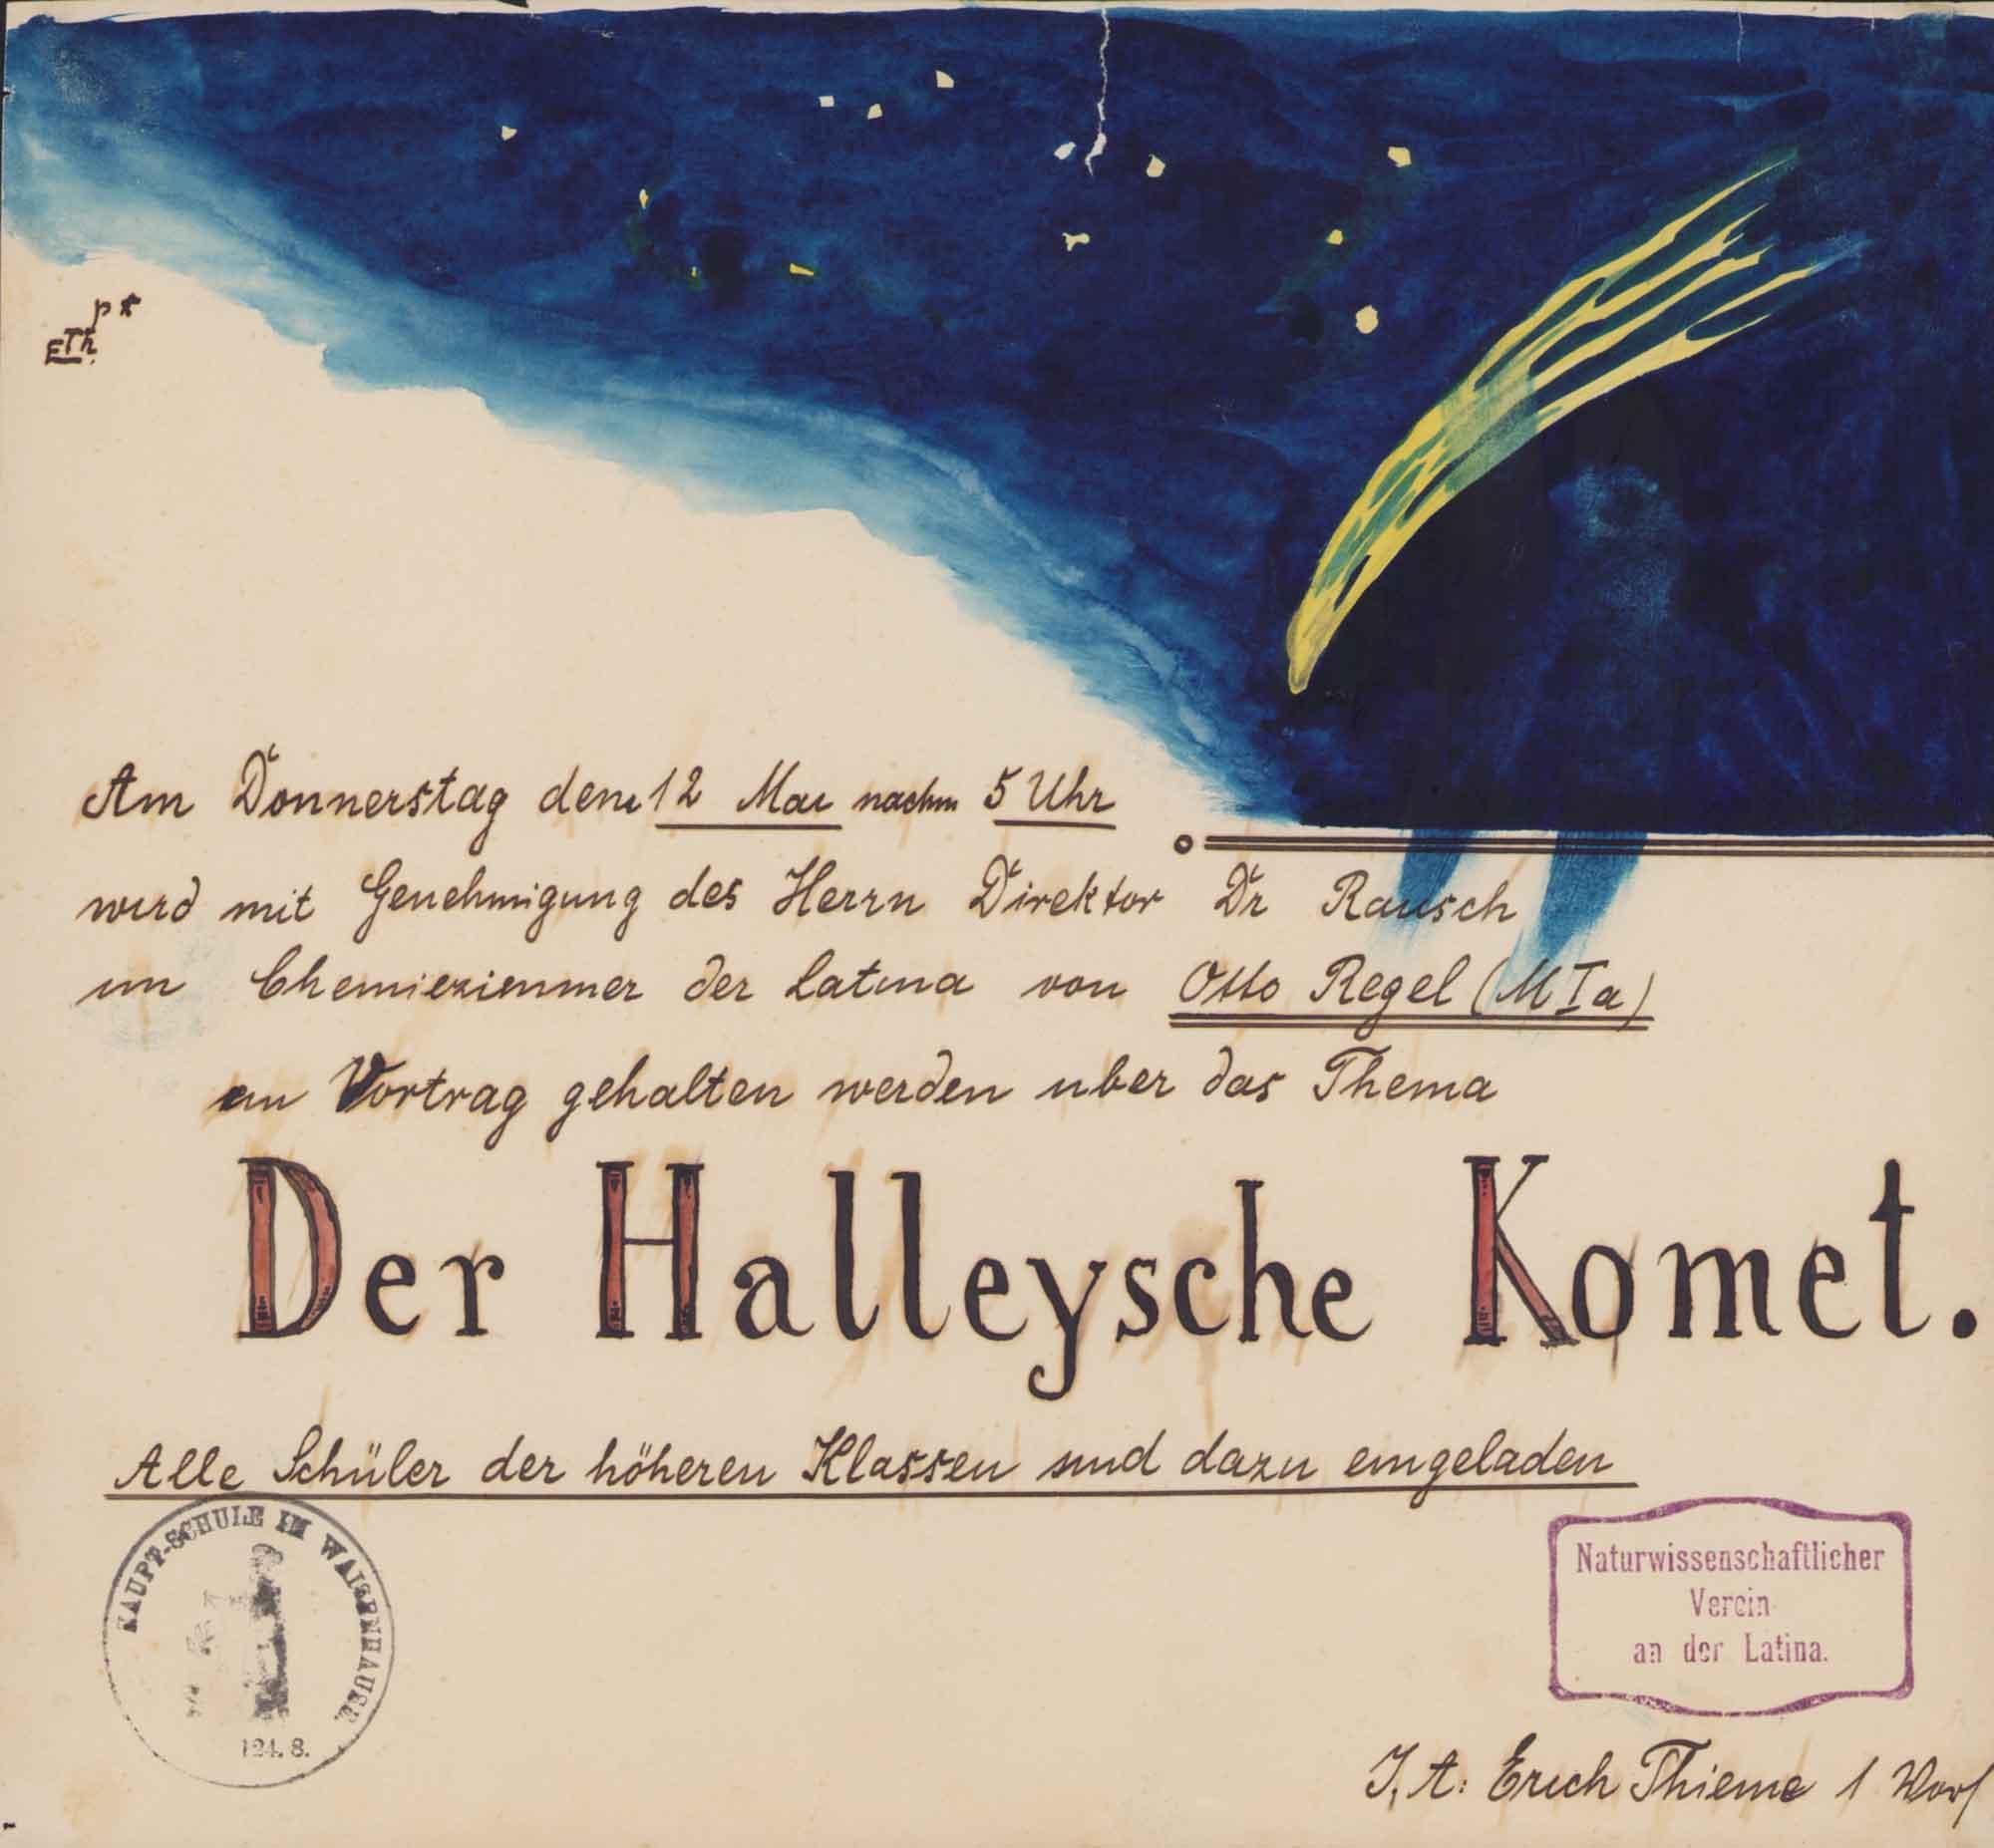 px
ETh.
Am Donnerstag den 12 Mai nachm 5 Uhr
wird mit Genehmigung des Herrn Direktor Dr Rausch
im Chemiezimmer der Latina von Otto Regel (M I a)
ein Vortrag gehalten werden uber das Thema
Der Halleysche Komet.
Alle Schüler der höheren Klassen sind dazu eingeladen
HAUPT-SCHULE IM WAISENHAUSE
124. 8.
Naturwissenschaftlicher
Verein
an der Latina.
I. A: Erich Thieme 1 Vors